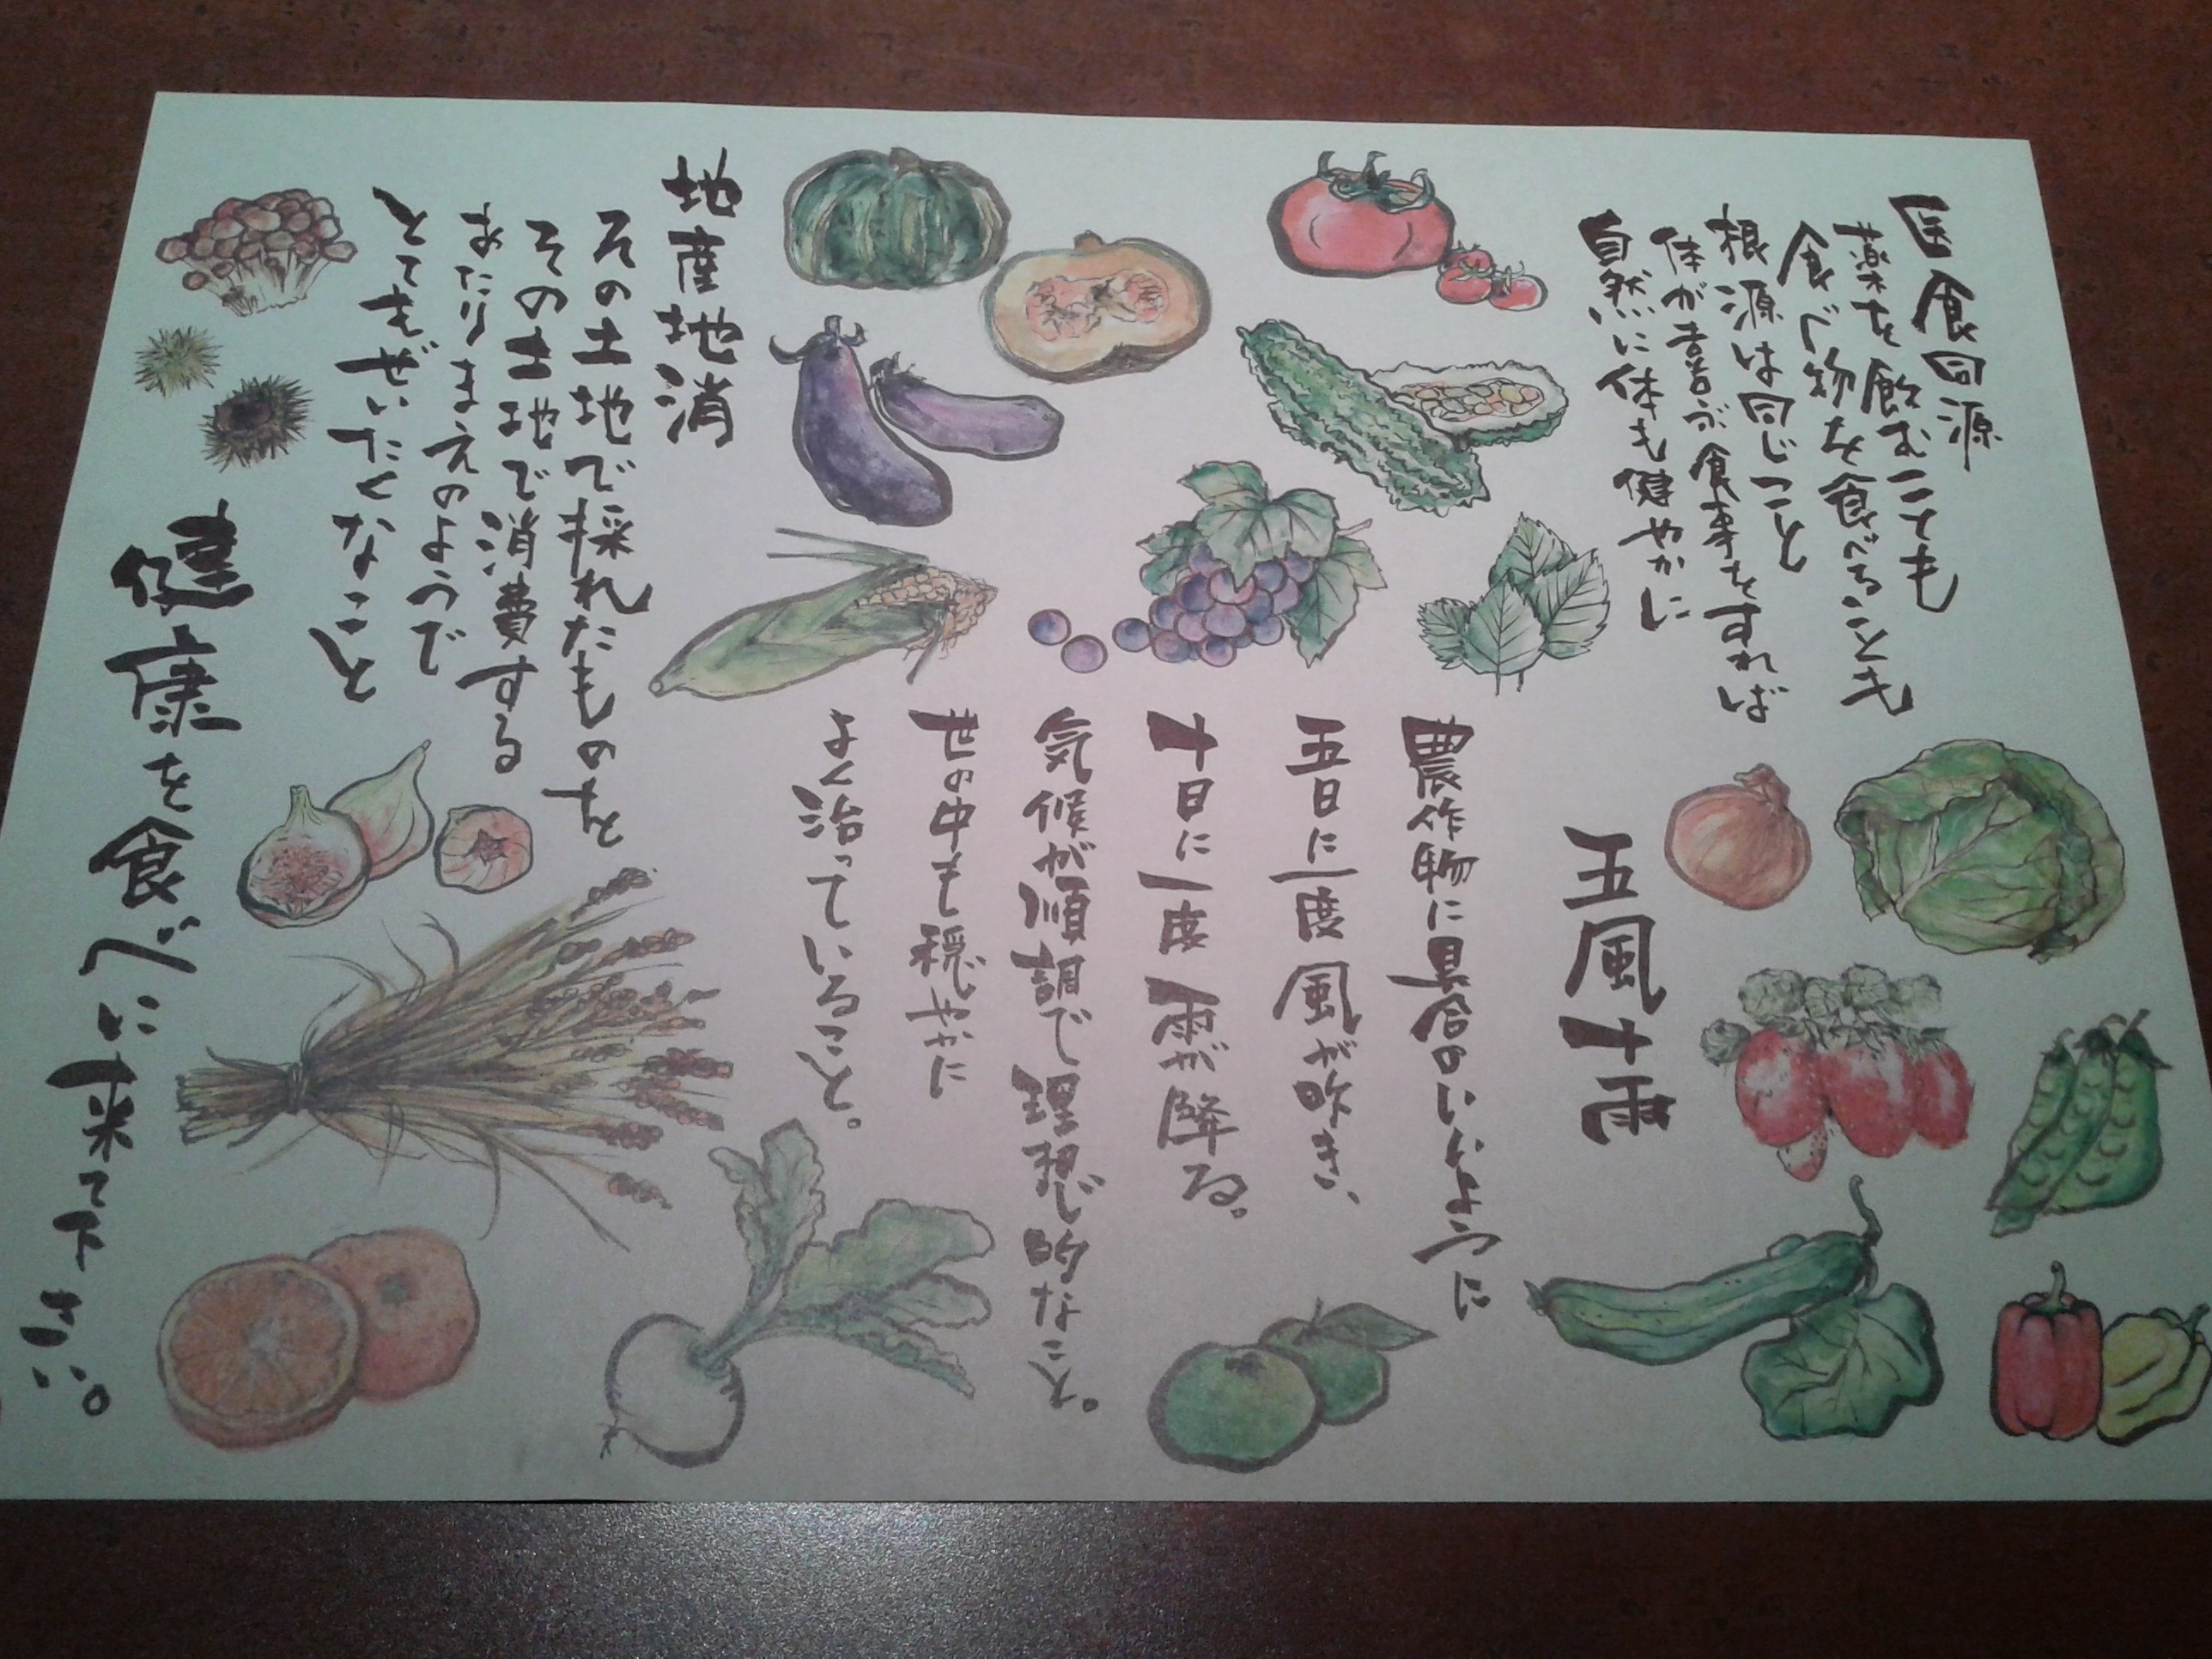 医食同源
薬を飲むことも
食べ物を食べることも
根源は同じこと
体が喜ぶ食事をすれば
自然に体も健やかに
五風十雨
農作物に具合のいいように
五日に一度風が吹き、
十日に一度雨が降る。
気候が順調で理想的なこと。
世の中も穏やかに
よく治っていること。
地産地消
その土地で採れたものを
その土地で消費する
あたりまえのようで
とてもぜいたくなこと
健康を食べに来て下さい。